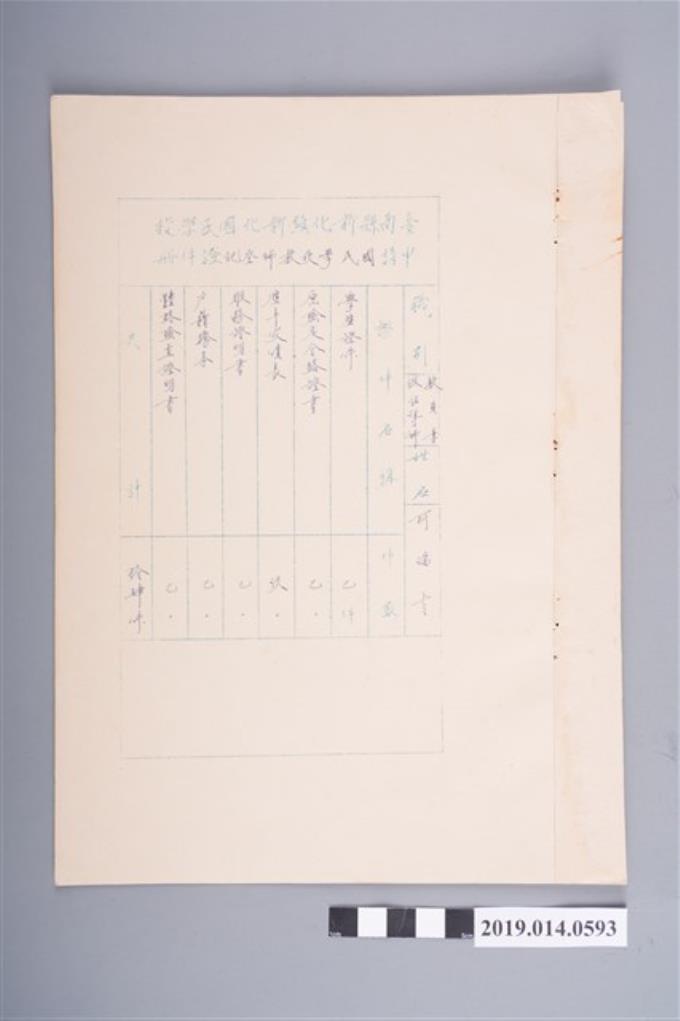 臺南縣新化鎮新化國民學校
申請國民學校教師登記證件冊
職別 教員兼級任導師 姓名
證件名稱 件數
學 證件 乙件
檢定合格證書 乙〃
歷年 玖〃
服務證明書 乙〃
戶籍謄本 乙〃
體格檢查證明書 乙〃
共計 拾肆件
2019.014.0593